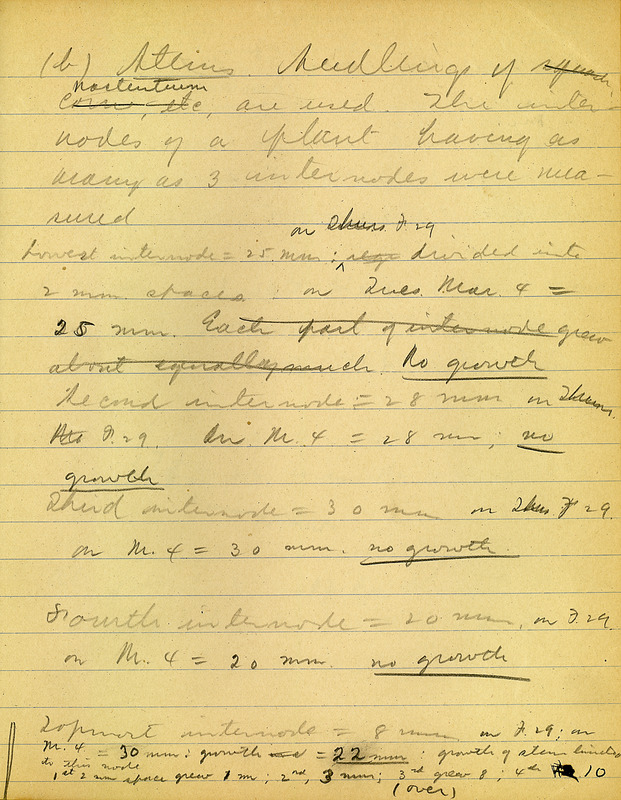 (b) Stems. Seedlings of squash,
Nasturtium
Corn, etc, are used. The inter-
nodes of a plant having as
many as 3 internodes were mea-
sured
on Thurs. F. 29
Lowest internode = 25 mm; divided into
2 mm spaces on Tues. Mar. 4 =
25 mm. Each part of internode grew
about equally much. No growth
Second internode = 28 mm on Thurs.
F. 29. On M. 4 = 28 mm; no
growth
Third internode = 30 mm on Thurs F 29.
on M. 4 = 30 mm. no growth.
Fourth internode = 20 mm, on F. 29.
on M. 4 = 20 mm. no growth
Topmost internode = 8 mm on F. 29; on
M. 4 = 30 mm: growth = 22 mm: growth of stem limited
to this node
1st 2 mm space grew 1 mm; 2nd, 3 mm; 3rd grew 8; 4th 10
(over)